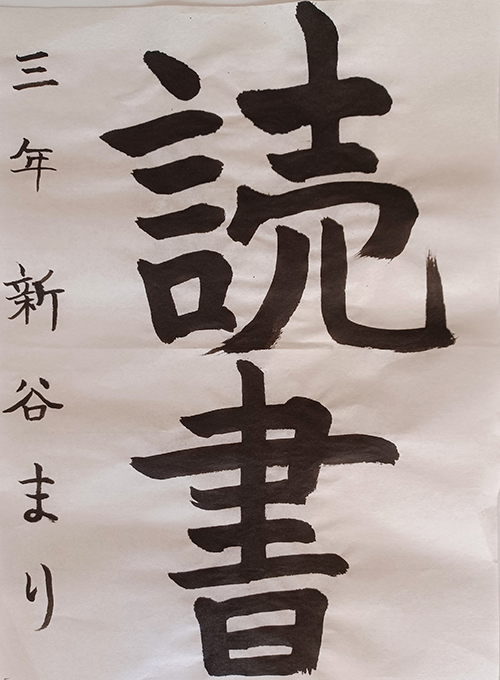 読書
三年 新谷まり